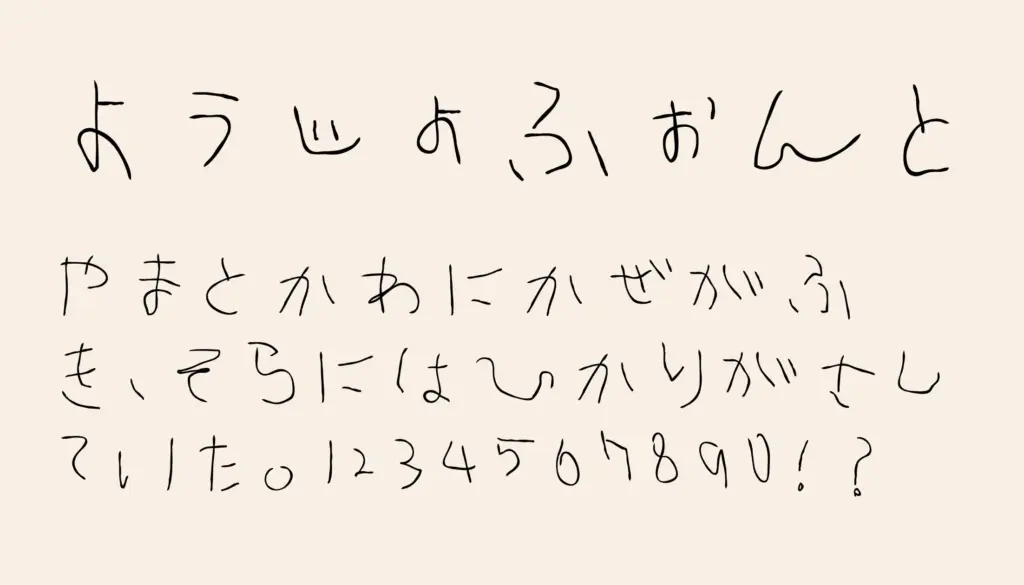 ようじょふぉんと
やまとかわにかぜがふ
き、そらにはひかりがさし
ていた。1234567890!?